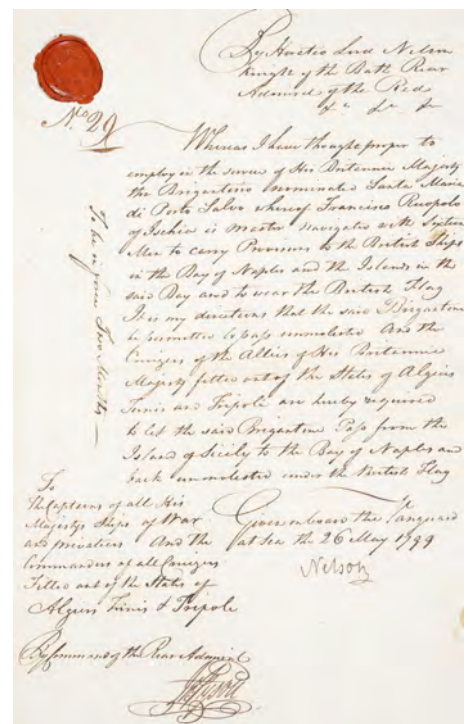 By Horatio Lord Nelson
Knight of the Bath Rear
Admiral of the Red
&c &c &c
No 29
Whereas I have thought proper to
employ in the service of His Britannic Majesty
the Brigantino nominated Santa Maria
di Porto Salvo whereof Francisco
of Ischia is master navigated with Sixteen
Men to carry Provisions to the British Ships
in the Bay of Naples and the Islands in the
said Bay and to wear the British Flag
It is my directions that the said Brigantine
be permitted to pass unmolested And the
Cruizers of the Allies of His Britannic
Majesty fitted out of the States of Algiers
Tunis and Tripoli are hereby required
to let the said Brigantine Pass from the
Island of Sicily to the Bay of Naples and
back unmolested under the British Flag
To be in force Two Months
Given on board the Vanguard
at Sea the 26 May 1799
Nelson
To
The Captains of all His
Majestys Ships of War
and privatiers And the
Commanders of all Cruizers
Fitted out of the States of
Algiers Tunis & Tripole
By Command of the Rear Admiral